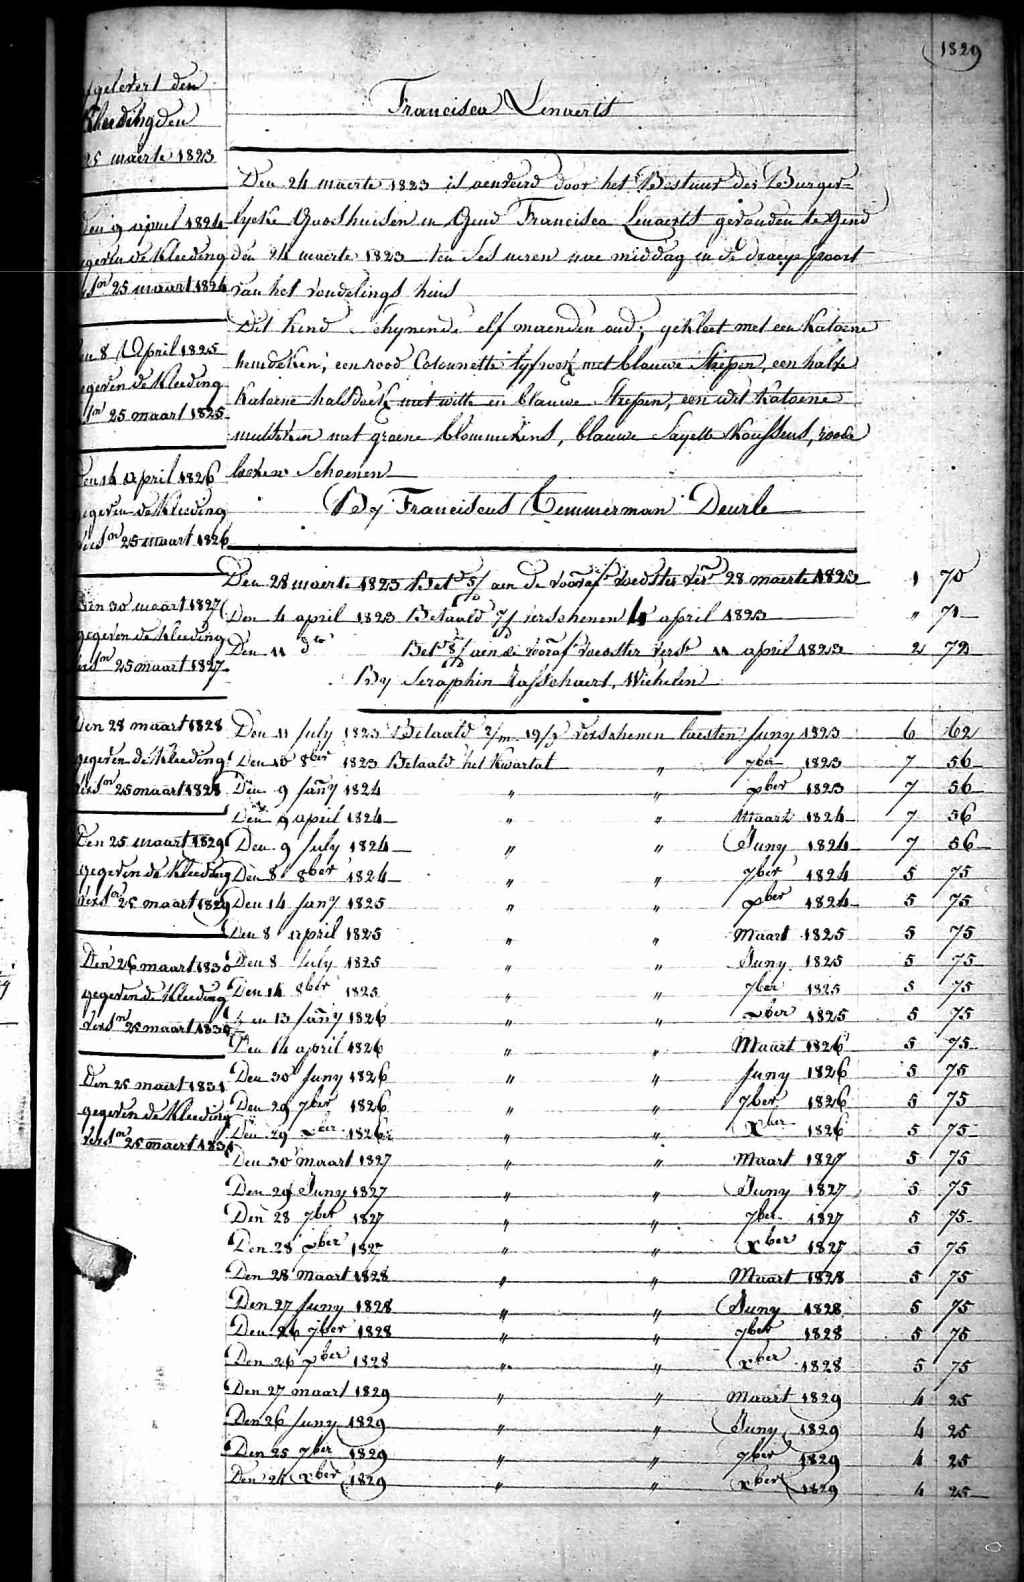 1829
Francisca Lenaerts
Den 24 maerte 1823 is aenveird door het Bestuur der Burger=
lyke Godshuisen in Gend Francisca Lenaerts gevonden te Gend
den 24 maerte 1823 ten ses uren nae middag in de draeye poort
van het vondelings huis
Dit kind schynende elf maenden oud, gekleet met een katoene
hemdeken, een rood Cotonnette lyfrok met blauwe Strepen, een halve
katoene halsdoek met witte en blauwe Strepen, een wit katoene
mutseken met groene blommekens, blauwe Sayette Koussens, roode
Schoenen
By Franciscus Temmerman Deurle
Den 28 maerte 1823 Bet. aen de vooraf voedster vers. 28 maerte 1823 1 70
Den 4 april 1823 Betaald verschenen 4 april 1823 " 71
Den 11 dto Bet. aen de vooraf voedster vers. 11 april 1823 2 72
By Seraphin Wichelen
Den 11 July 1823 Betaald 2/m 19/d verschenen laesten Juny 1823 6 62
Den 10 8ber 1823 Betaald het Kwartal " 7ber 1823 7 56
Den 9 Janny 1824 " " xber 1823 7 56
Den 9 april 1824 " " Maart 1824 7 56
Den 9 July 1824 " " Juny 1824 7 56
Den 8 8ber 1824 " " 7ber 1824 5 75
Den 14 Jany 1825 " " xber 1824 5 75
Den 8 april 1825 " " Maart 1825 5 75
Den 8 July 1825 " " Juny 1825 5 75
Den 14 8ber 1825 " " 7ber 1825 5 75
Den 13 Janny 1826 " " xber 1825 5 75
Den 14 april 1826 " " Maart 1826 5 75
Den 30 Juny 1826 " " Juny 1826 5 75
Den 29 7ber 1826 " " 7ber 1826 5 75
Den 29 xber 1826 " " xber 1826 5 75
Den 30 maart 1827 " " Maart 1827 5 75
Den 29 Juny 1827 " " Juny 1827 5 75
Den 28 7ber 1827 " " 7ber 1827 5 75
Den 28 xber 1827 " " xber 1827 5 75
Den 28 Maart 1828 " " Maart 1828 5 75
Den 27 Juny 1828 " " Juny 1828 5 75
Den 26 7ber 1828 " " 7ber 1828 5 75
Den 26 xber 1828 " " xber 1828 5 75
Den 27 maart 1829 " " Maart 1829 4 25
Den 26 Juny 1829 " " Juny 1829 4 25
Den 25 7ber 1829 " " 7ber 1829 4 25
Den 24 xber 1829 " " xber 1829 4 25
fgelevert den
Kleeding den
25 maerte 1823
den 9 april 1824
egeven de Kleeding
rsn 25 maart 1824
en 8 April 1825
egeven de Kleeding
sn 25 maart 1825
en 14 april 1826
gegeven de Kleeding
versn 25 maart 1826
Den 30 maart 1827
gegeven de Kleeding
versn 25 maart 1827
Den 28 maart 1828
gegeven de Kleeding
versn 25 maart 1828
Den 25 maart 1829
gegeven de Kleeding
versn 25 maart 1829
Den 26 maart 1830
gegeven de Kleeding
versn 25 maart 1830
Den 25 maert 1831
gegeven de Kleeding
versn 25 maert 1831